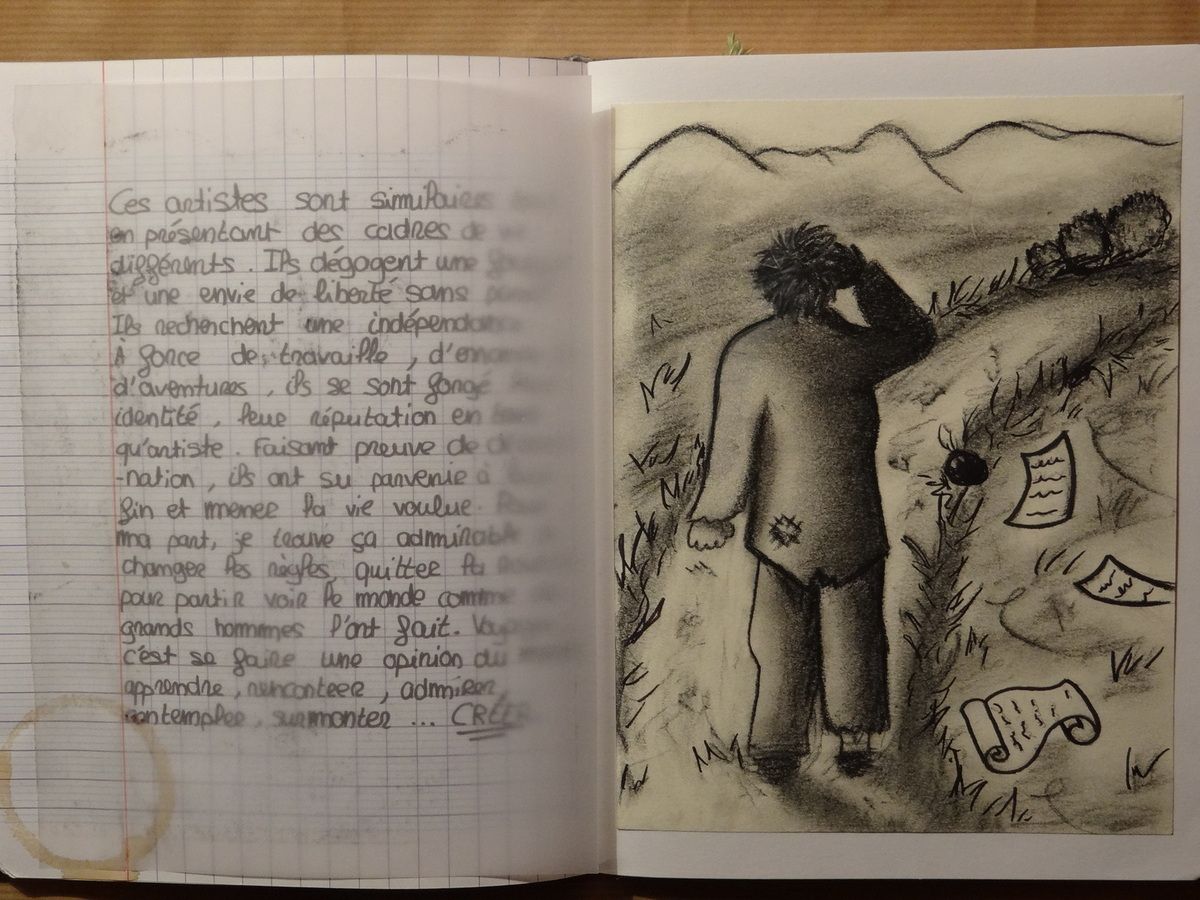 Ces artistes sont similaires
en présentant des cadres de
différents. Ils dégagent une
et une envie de liberté sans
Ils recherchent une indépendance
À force de travaille, d'
d'aventures, ils se sont forgé
identité, leur réputation en
qu'artiste. Faisant preuve de
-nation, ils ont su parvenir à
fin et mener la vie voulue.
ma part, je trouve ça admirable
changer les règles, quitter la
pour partir voir le monde comme
grands hommes l'ont fait.
c'est se faire une opinion du
apprendre, rencontrer, admirer,
contempler, surmonter ... CRÉER